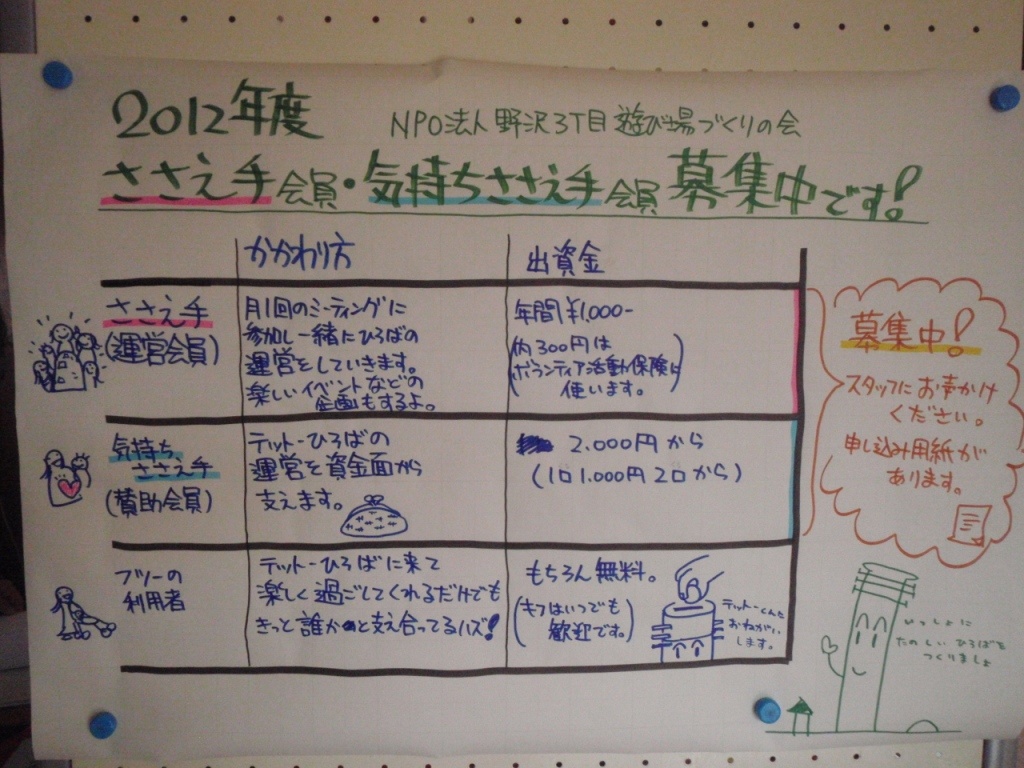 2012年度
NPO法人 野沢3丁目遊び場づくりの会
ささえ手会員・気持ちささえ手会員募集中です!
かかわり方
出資金
ささえ手
(運営会員)
月1回のミーティングに
参加し一緒にひろばの
運営をしていきます。
楽しいイベントなどの
企画もするよ。
年間¥1,000-
(内300円は
ボランティア活動保険に
使います。)
気持ち
ささえ手
(賛助会員)
テットーひろばの
運営を資金面から
支えます。
2.000円から
(1口1.000円2口から)
フツーの
利用者
テットーひろばに来て
楽しく過ごしてくれるだけでも
きっと誰かと支え合ってるハズ!
もちろん無料。
(キフはいつでも
歓迎です。)
テットーくんに
おねがい
します。
募集中!
スタッフにお声かけ
ください。
申し込み用紙が
あります。
いっしょに
たのしいひろばを
つくりましょ